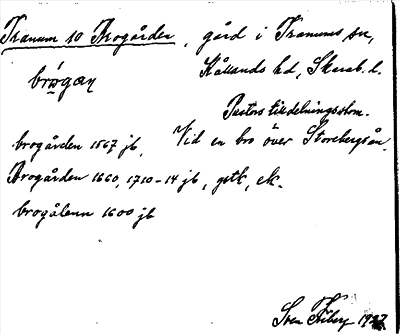 Tranum 10 Brogården, gård i Tranums sn,
Kållands hd, Skarab. l.
brωgan
Pastors tilldelningsstom.
brogården 1567 jb, Vid en bro över Storebergsån.
Brogården 1660, 1710-14 jb, gstk, ek.
brogålenn 1600 jb
Sven Friberg